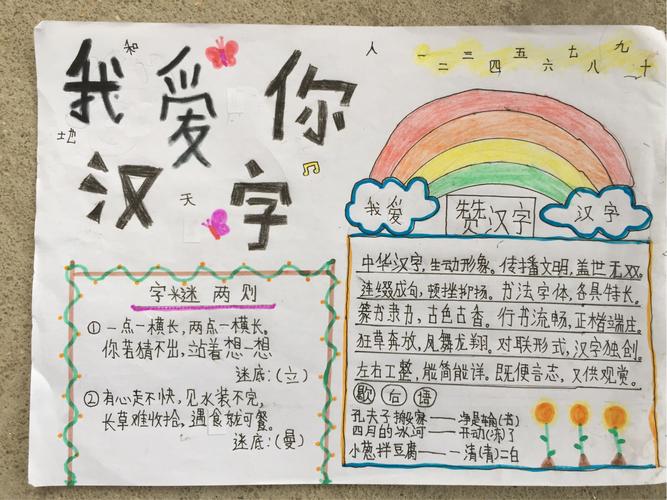 我爱你
汉字
和
地
天
人
一二三四五六七八九十
我爱
赞汉字
汉字
字谜两则
①一点一横长，两点一横长。
你若猜不出，站着想一想
谜底：(立)
②有心走不快，见水装不完，
长草难收拾，遇食就可餐。
谜底：(曼)
中华汉字，生动形象。传播文明，盖世无双。
连缀成句，顿挫抑扬。书法字体，各具特长。
篆书隶书，古色古香。行书流畅，正楷端庄。
狂草奔放，凤舞龙翔。对联形式，汉字独创。
左右工整，能简能详。既便言志，又供观赏。
歇后语
孔夫子搬家——净是输(书)
四月的冰河——开动(冻)了
小葱拌豆腐——一清(青)二白